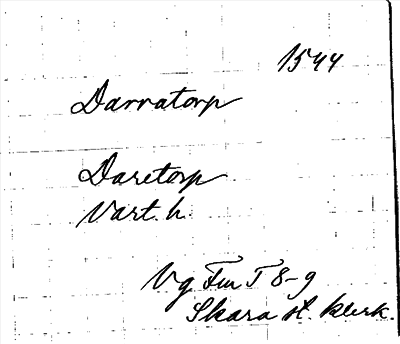 1544
Darratorp
Daretorp
Vart. h.
Vg Fm T 8-9
Skara st. klerk.